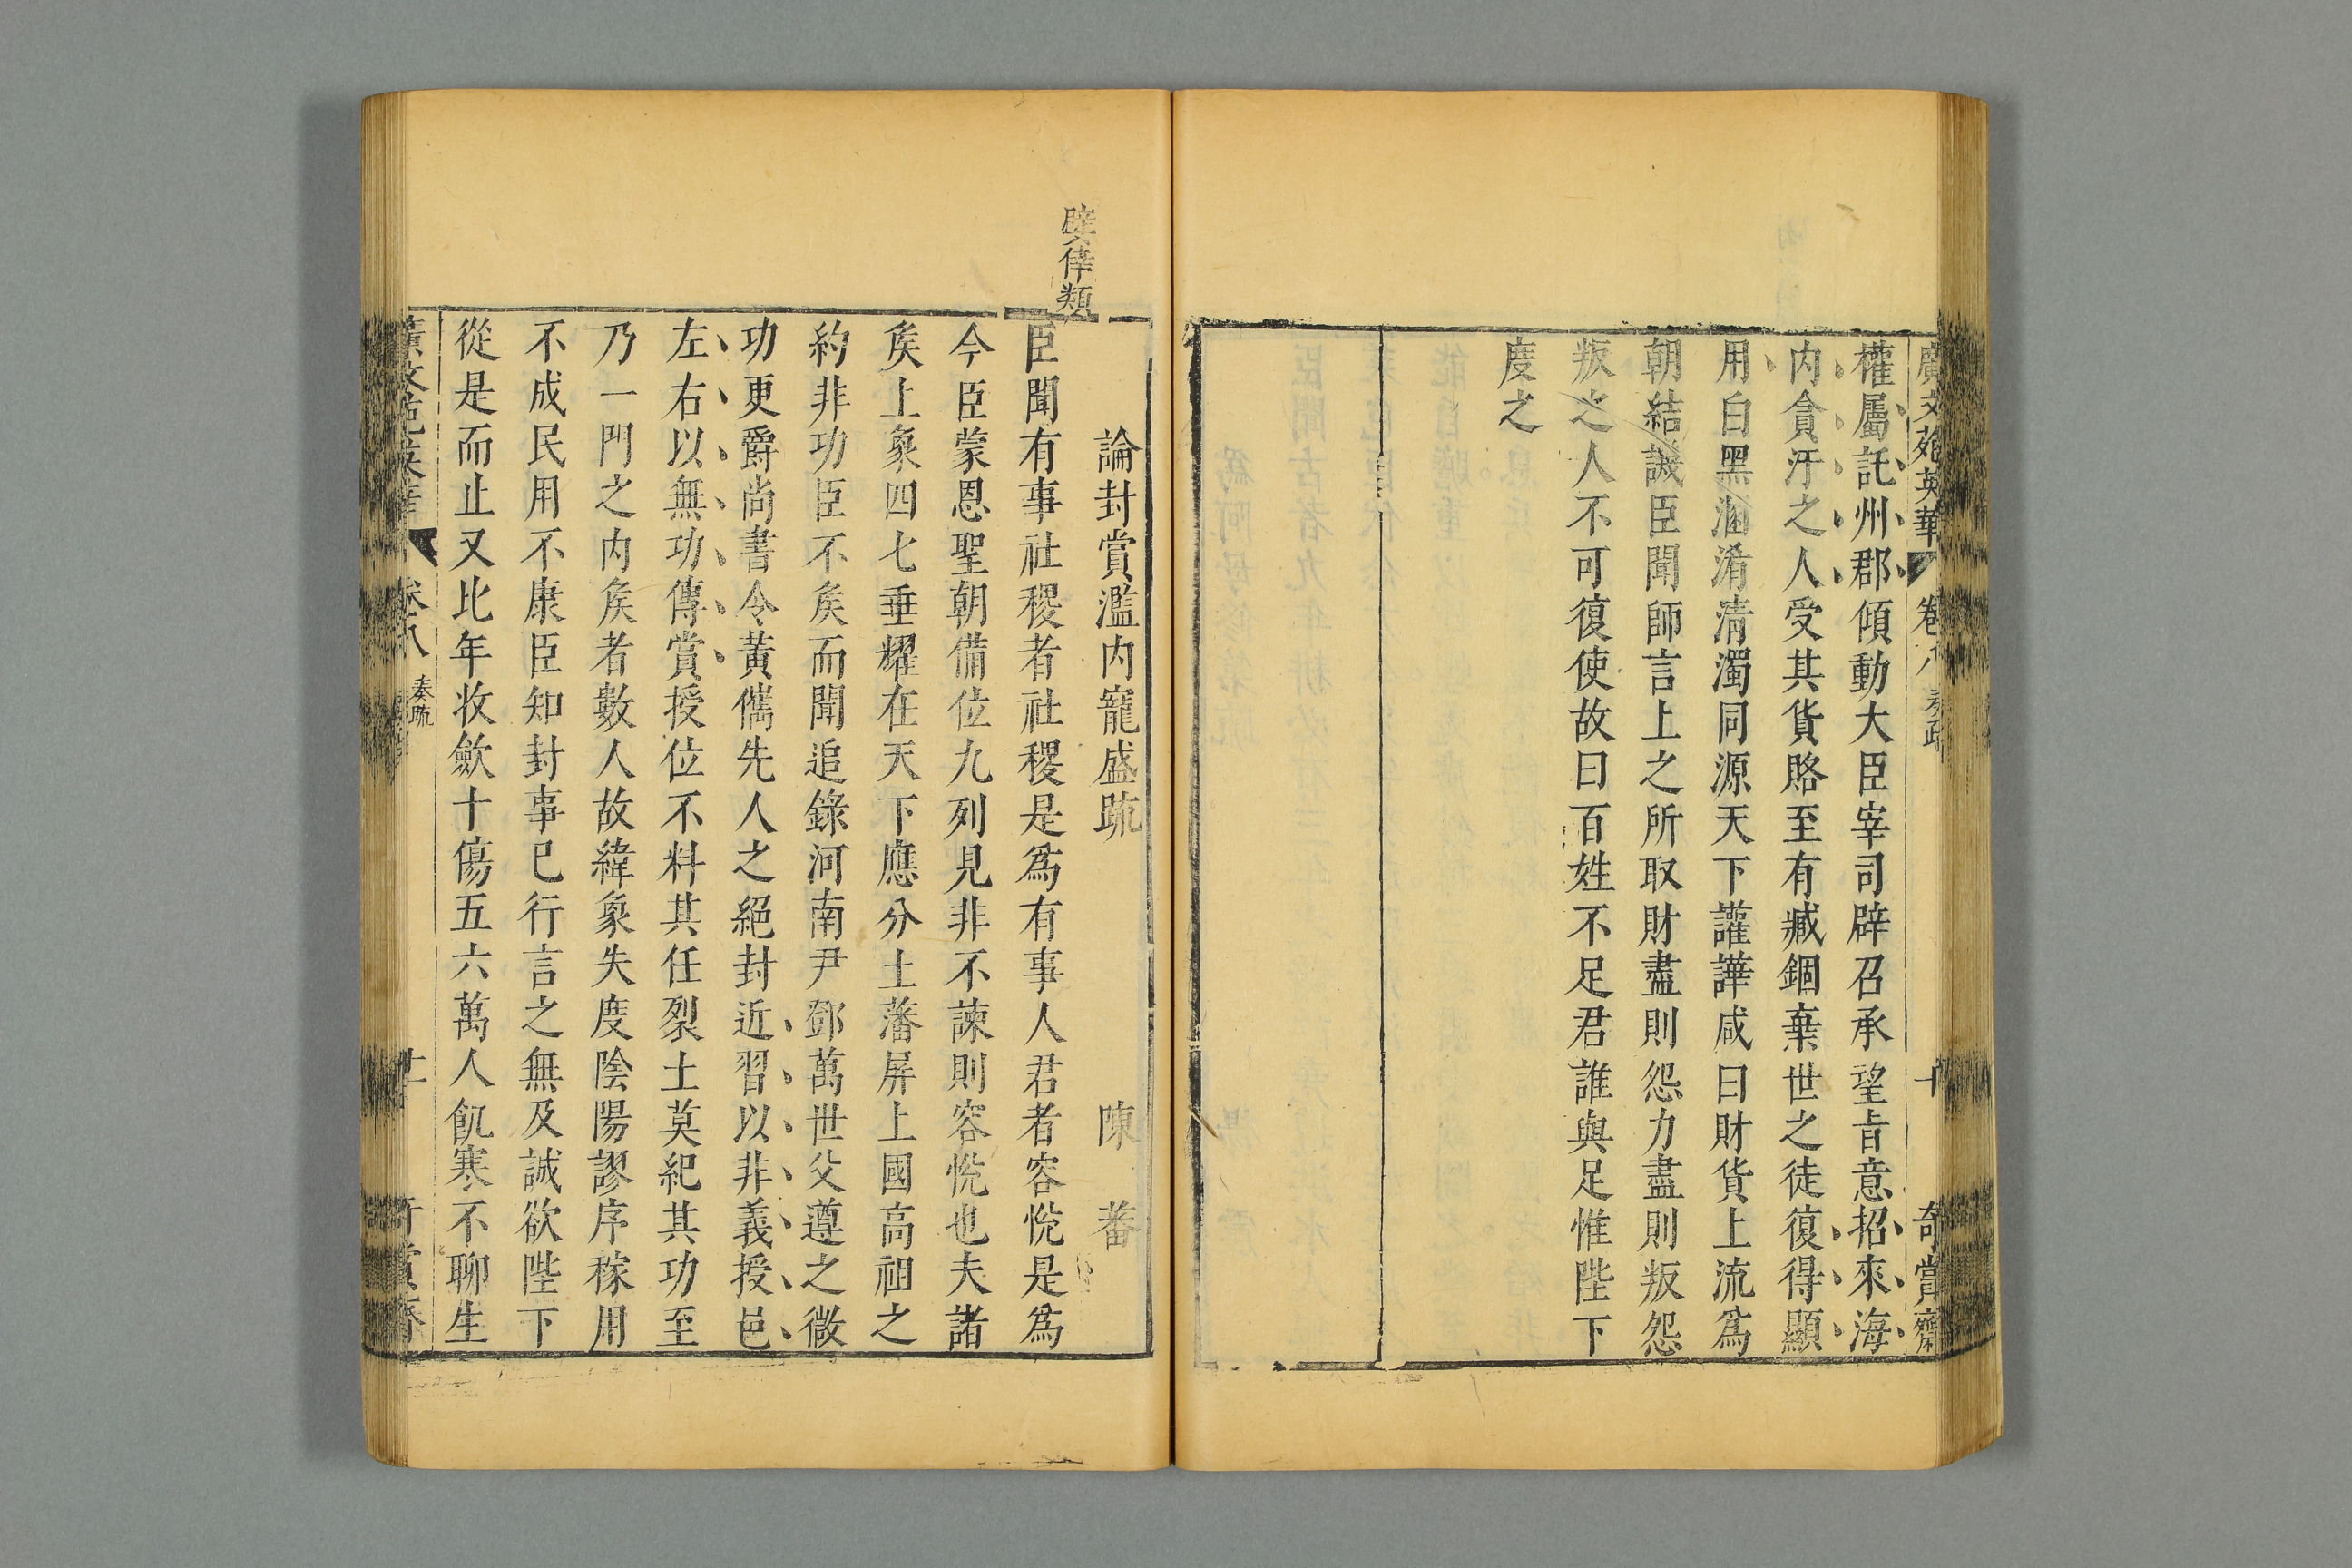 廣文苑英華 卷八 奏疏 十 奇賞齋
權屬託州郡傾動大臣宰司辟召承望旨意招來海
内貪汙之人受其貨賂至有臧錮棄世之徒復得顯
用白黑溷淆淸濁同源天下讙譁咸曰財貨上流爲
朝結譏臣聞師言上之所取財盡則怨力盡則叛怨
叛之人不可復使故曰百姓不足君誰與足惟陛下
度之
嬖倖類
論封賞濫内寵盛疏 陳蕃
臣聞有事社稷者社稷是爲有事人君者容悅是爲
今臣蒙恩聖朝備位九列見非不諫則容悅也夫諸
矦上象四七垂耀在天下應分土藩屏上國高祖之
約非功臣不矦而聞追錄河南尹鄧萬世父遵之微
功更爵尚書令黄儁先人之絕封近習以非義授邑
左右以無功傳賞授位不料其任裂土莫紀其功至
乃一門之内矦者數人故緯象失度陰陽謬序稼用
不成民用不康臣知封事已行言之無及誠欲陛下
從是而止又比年收斂十傷五六萬人飢寒不聊生
廣文苑英華 卷八 奏疏 十一 奇賞齋